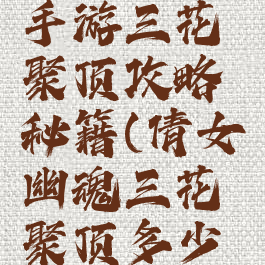 手游三花
聚顶攻略
秘籍(倩女
幽魂三花
聚顶多少